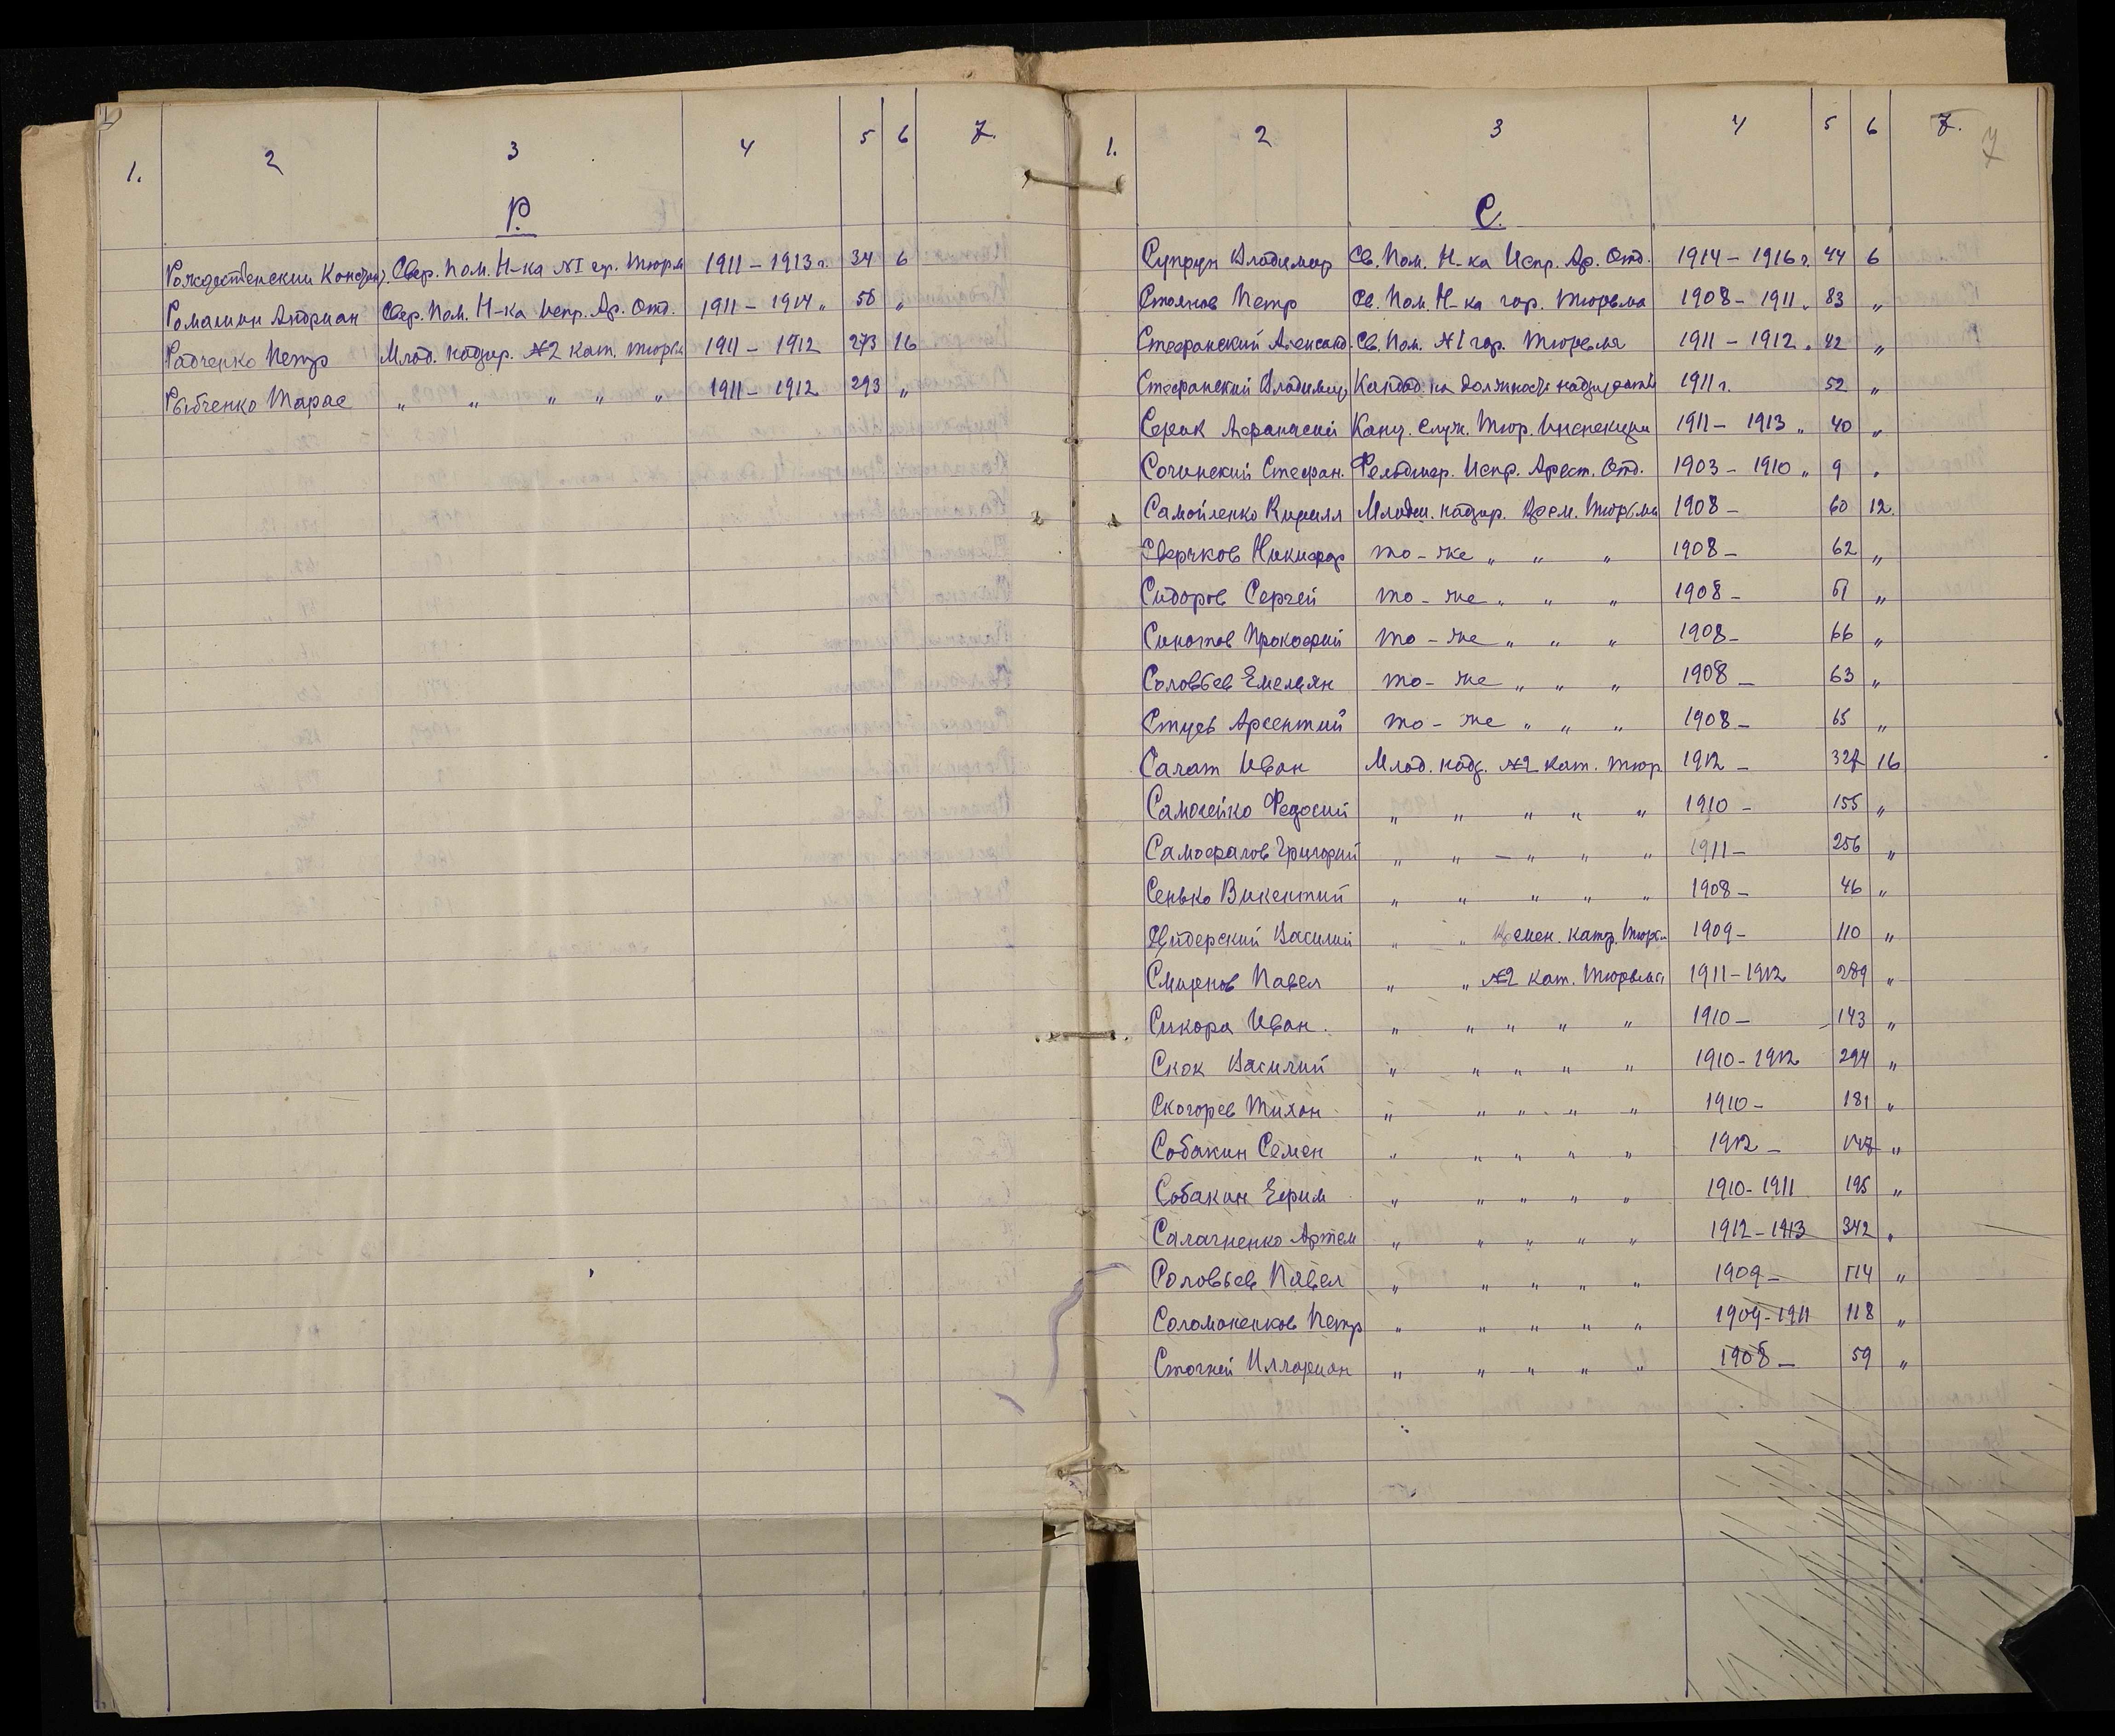 1. 2 3 4 5 6 7.
Р.
Рождественский Констан. Свер. Пом. Н-ка №I гр. Тюрм 1911 – 1913 г. 34 6
Ромашин Андриан Свер. Пом. Н-ка Испр. Ар. Отд. 1911 – 1914 „ 58 „
Радченко Петр Млад. надзир. №2 кат. тюрьм 1911 – 1912 273 16
Рыбченко Тарас „ „ „ „ „ 1911 – 1912 293 „
1. 2 3 4 5 6 7. 7
С.
Супрун Владимир Св. Пом. Н-ка Испр. Ар. Отд. 1914 – 1916 г. 44 6
Стоянов Петр Св. Пом. Н-ка гор. Тюрьма 1908 – 1911 „ 83 „
Стефанский Александ. Св. Пом. №1 гор. Тюрьма 1911 – 1912 „ 42 „
Стефанский Владимир Кандид. на должность надзирателя 1911 г. 52 „
Серик Афанасий Канц. служ. Тюр. Инспекции 1911 – 1913 „ 40 „
Сочинский Стефан. Фельдшер. Испр. Арест. Отд. 1903 – 1910 „ 9 „
Самойленко Кирилл Младш. надзир. Врем. Тюрьма 1908 – 60 12
Сверчков Никифор то-же „ „ „ 1908 – 62 „
Сидоров Сергей то-же „ „ „ 1908 – 61 „
Синотов Прокофий то-же „ „ „ 1908 – 66 „
Соловьев Емельян то-же „ „ „ 1908 – 63 „
Стуев Арсентий то-же „ „ „ 1908 – 65 „
Салат Иван Млад. надз. №2 кат. тюр 1912 – 327 16
Самосейко Федосий „ „ „ „ „ 1910 – 155 „
Самофалов Григорий „ „ – „ „ „ 1911 – 256 „
Сенько Викентий „ „ „ „ „ 1908 – 46 „
Свидерский Василий „ „ Времен. катр. Тюрьм 1909 – 110 „
Смирнов Павел „ „ №2 кат. Тюрьма 1911 – 1912 289 „
Сикора Иван „ „ „ „ „ 1910 – 143 „
Скок Василий „ „ „ „ „ 1910 – 1912 294 „
Скогорев Тихон „ „ „ „ „ 1910 – 181 „
Собакин Семен „ „ „ „ „ 1912 – 147 „
Собакин Ефим „ „ „ „ „ 1910 – 1911 195 „
Салагненко Артем „ „ „ „ „ 1912 – 1913 342 „
Соловьев Павел „ „ „ „ „ 1909 – 114 „
Соломоненков Петр „ „ „ „ „ 1909 – 1911 118 „
Стогней Илларион „ „ „ „ „ 1908 – 59 „